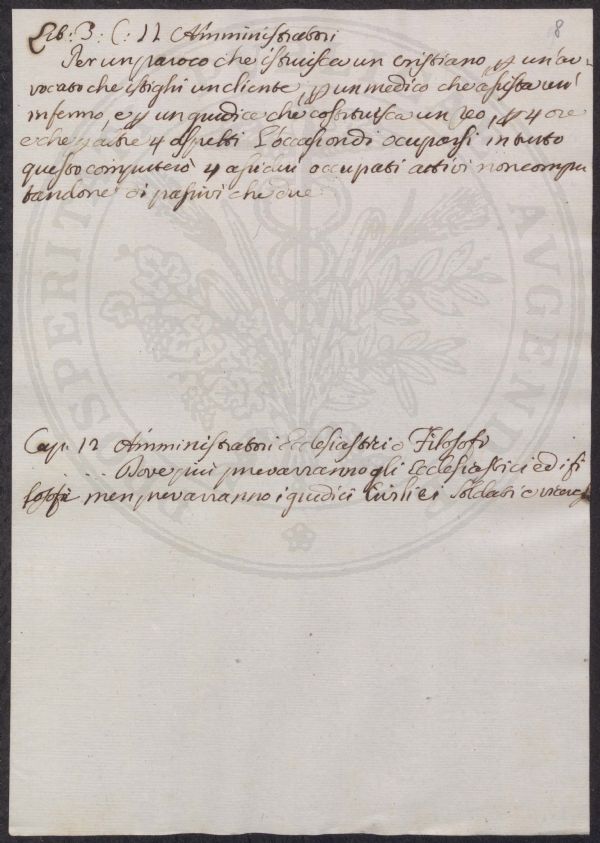 8
Lib: 3: C: 11 Amministratori
Per un paroco che istruisca un cristiano, p un' av
vocato che istighi un cliente, p un medico che assista un'
infermo, e p un giudice che costituisca un reo, p 4 ore
e che p altre 4 aspetti l'occasion di occuparsi, in tutto
questo computerò 4 assidui occupati attivi non compu
tandone di passivi che due
Cap: 12 Amministratori Ecclesiastici e Filosofi
... Dove più prevarranno gli Ecclesiastici ed i fi
losofi men prevarranno i giudici Curiali Soldati e
PROSPERITATI PUBLICAE AVGENDAE